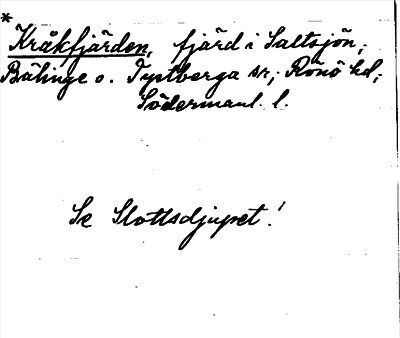 *
Kråkfjärden, fjärd i Saltsjön;
Bälinge o. Tystberga sr; Rönö hd;
Södermanl. l.
Se Slottsdjupet!